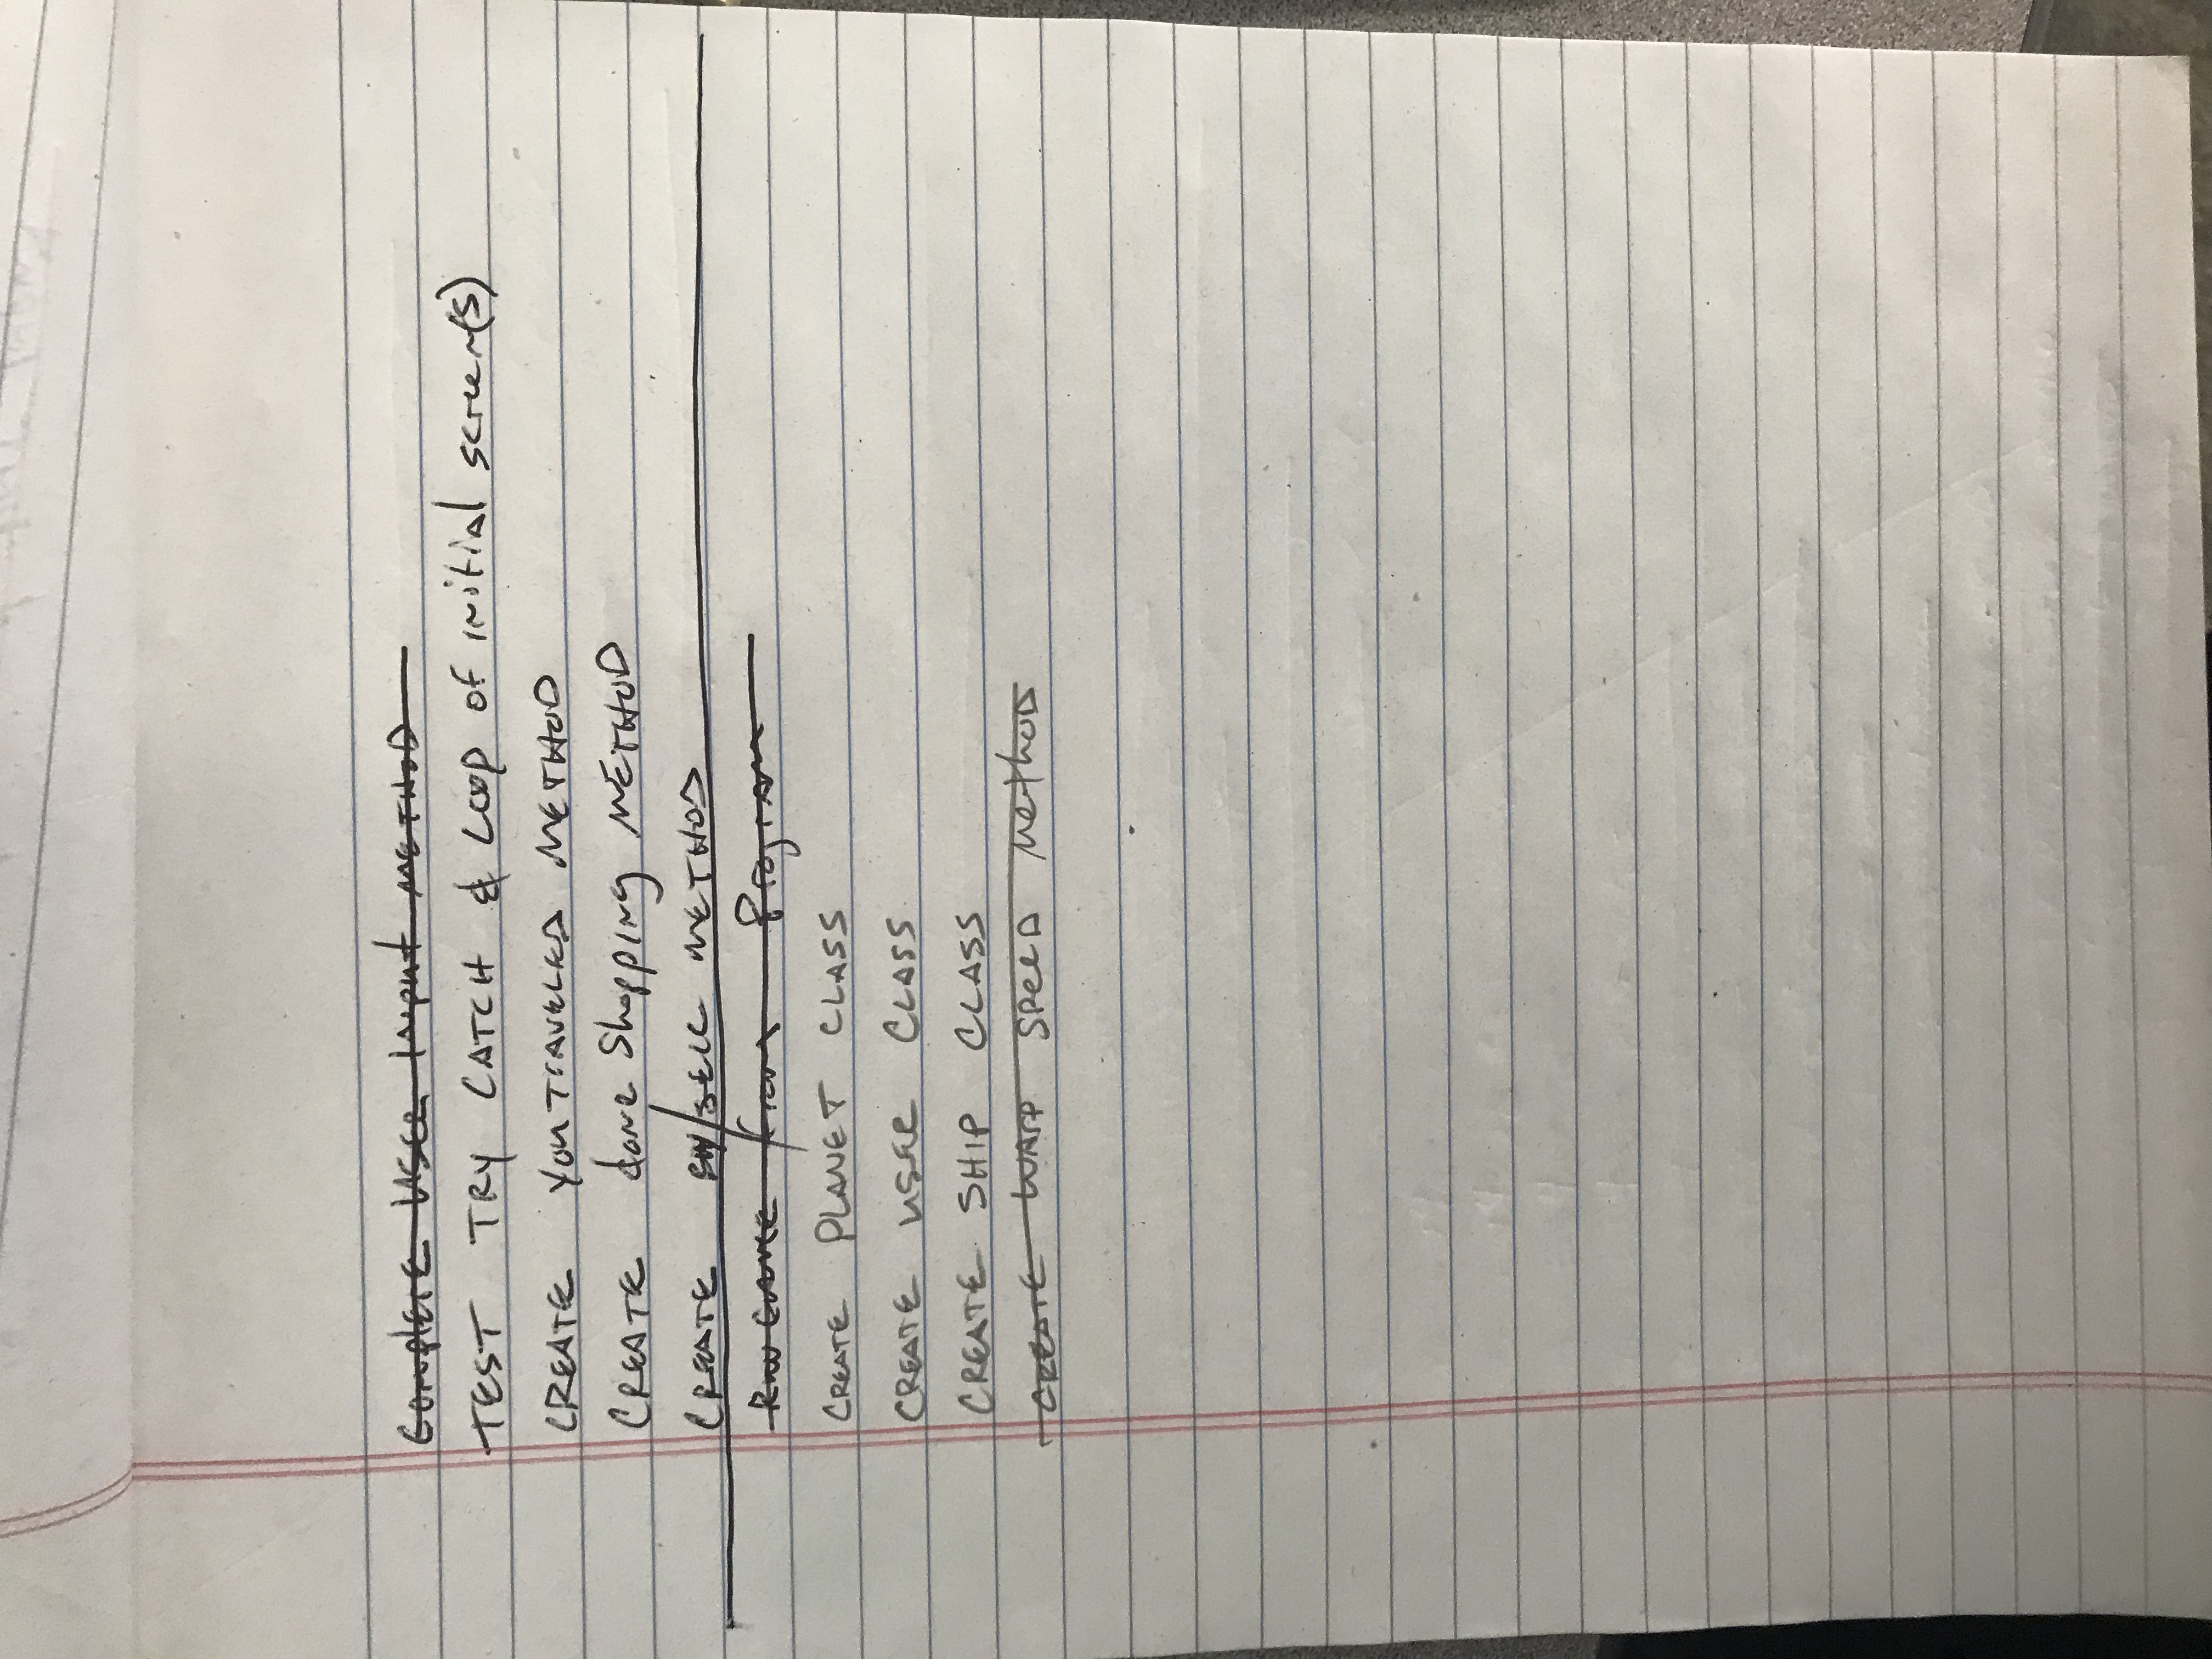 Complete User Input METHOD
TEST TRY CATCH & LOOP of initial screen(s)
CREATE You Traveled METHOD
CREATE done Shopping METHOD
CREATE Buy/SELL METHOD
Run Game from Program
CREATE PLANET CLASS
CREATE USER CLASS
CREATE SHIP CLASS
CREATE WARP SPEED METHOD